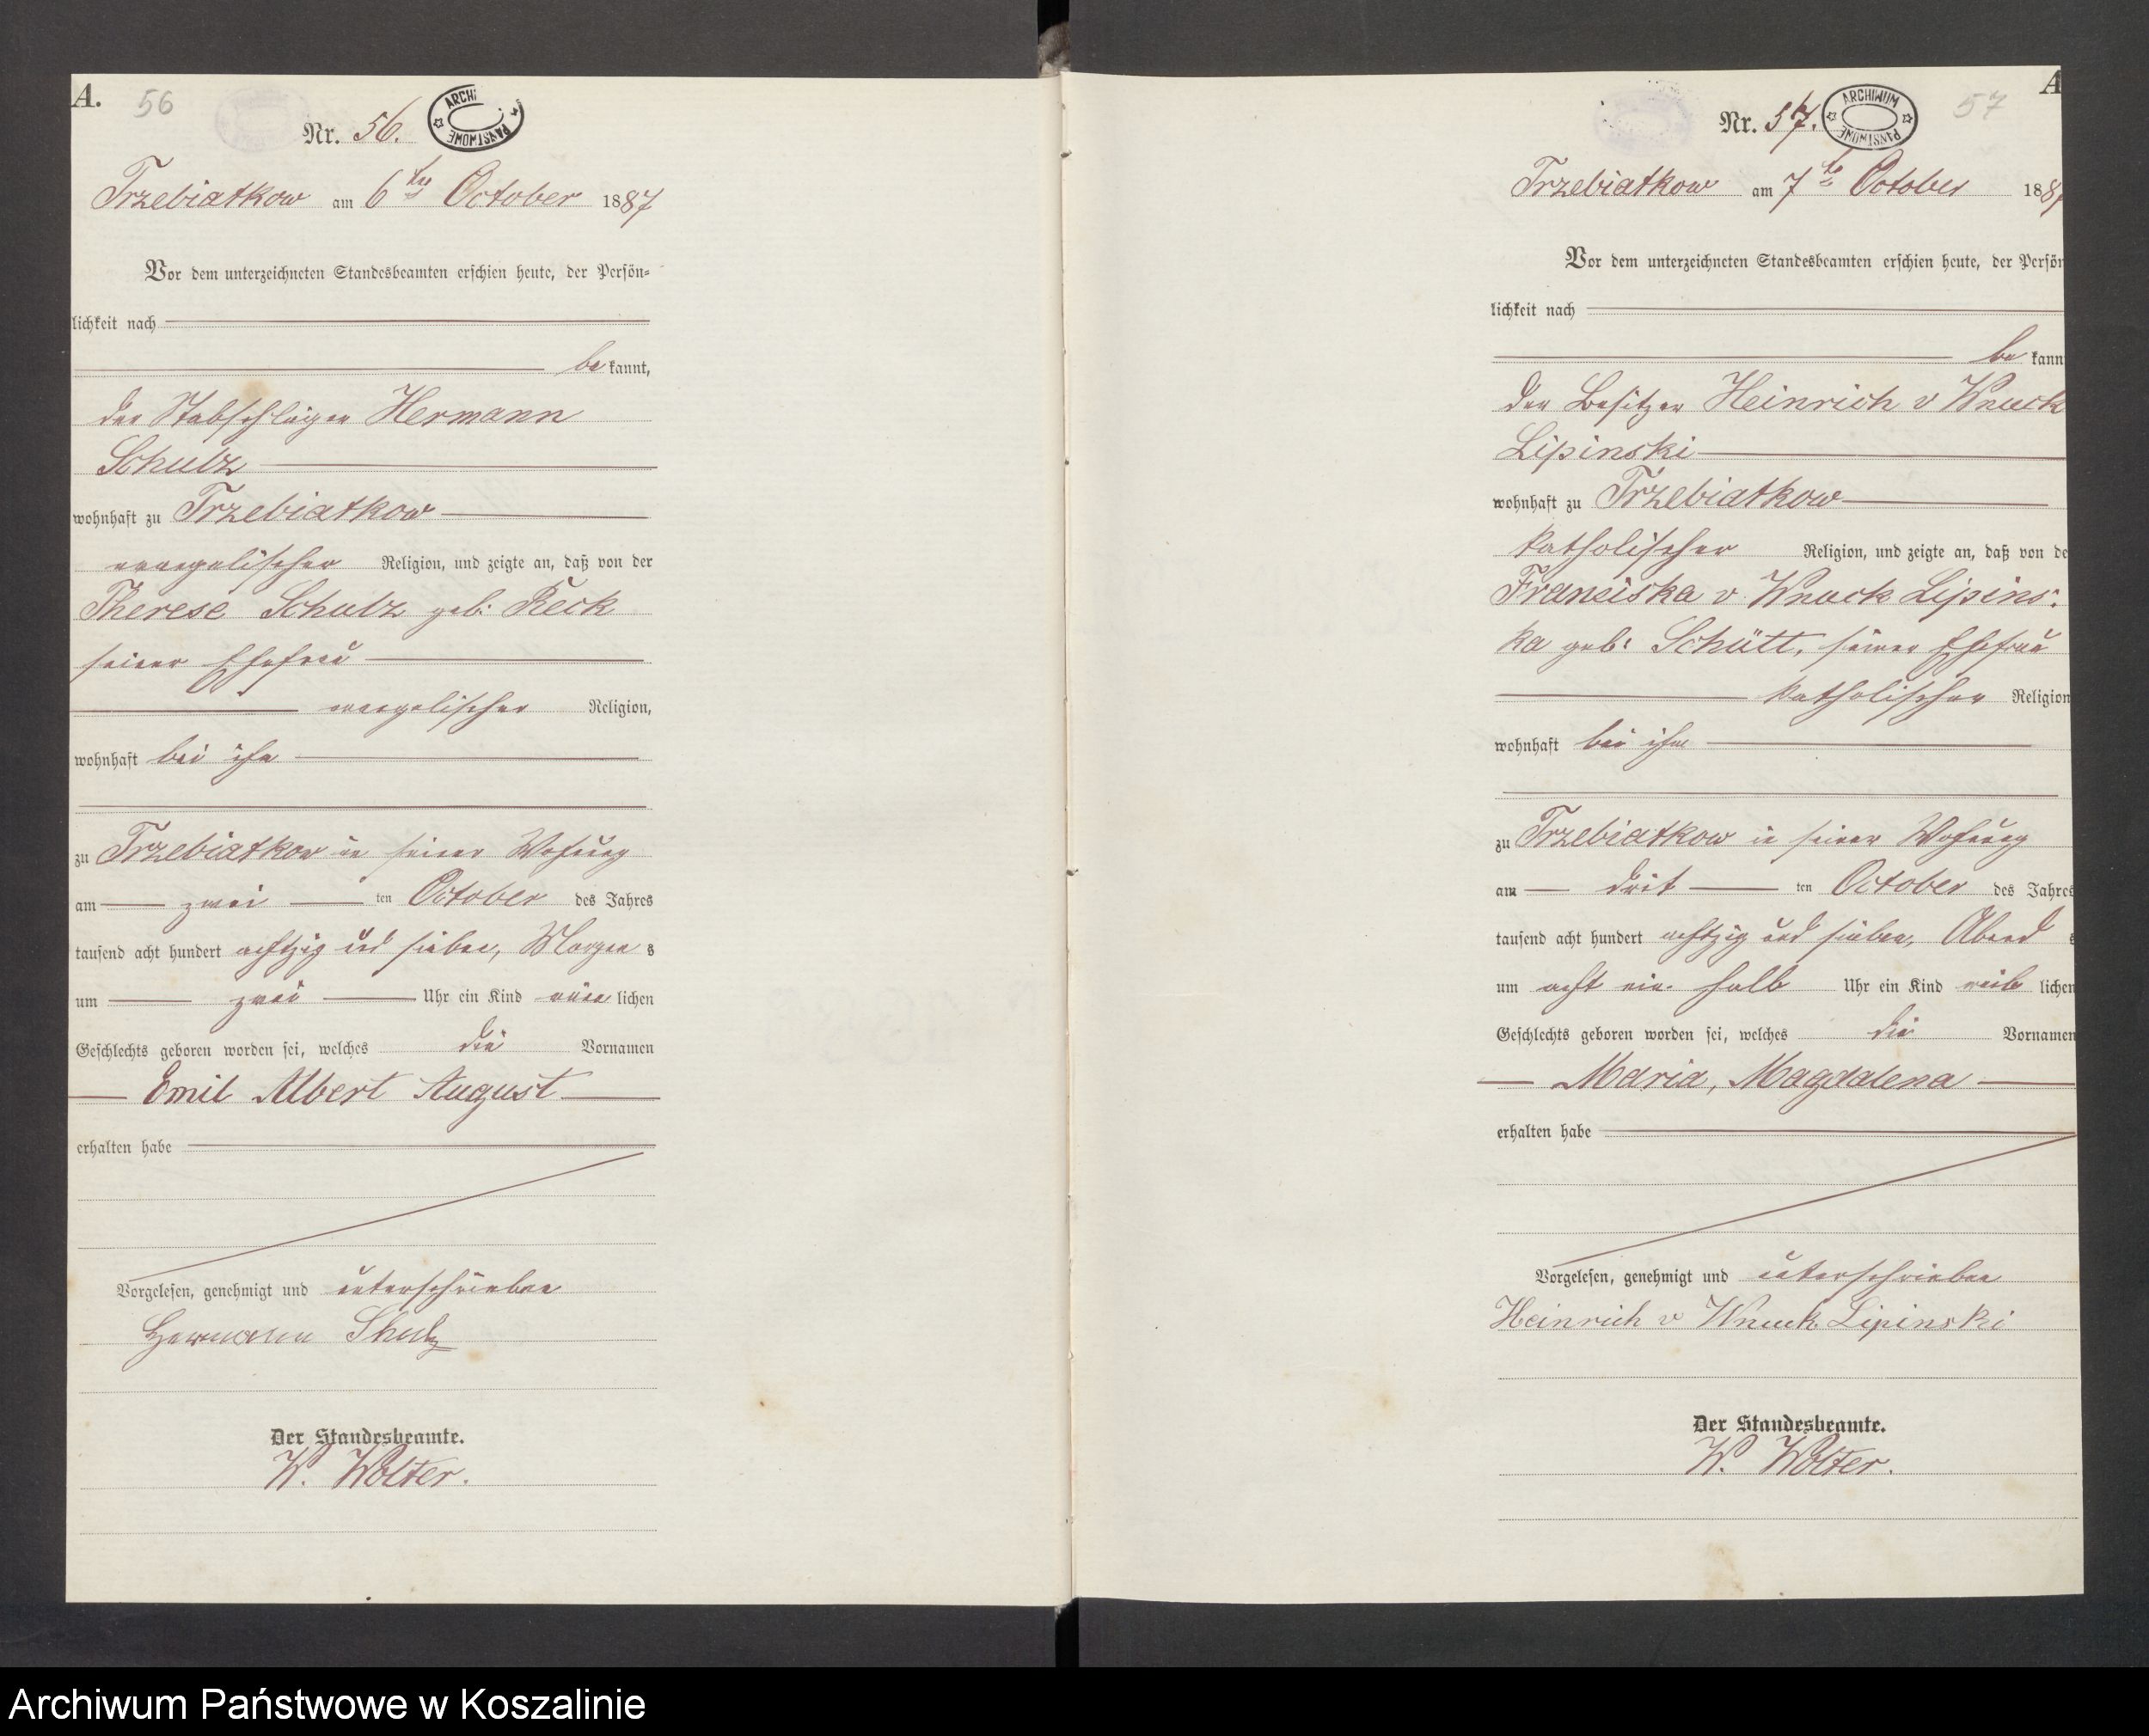 A.
56
Nr. 56.
ARCHI PAŃSTWOWE
Trzebiatkow am 6ten October 1887
Vor dem unterzeichneten Standesbeamten erschien heute, der Persön-
lichkeit nach
bekannt,
der Stabschläger Hermann
Schulz
wohnhaft zu Trzebiatkow
evangelischer Religion, und zeigte an, daß von der
Therese Schulz geb: Reck
seiner Ehefrau
evangelischer Religion,
wohnhaft bei ihm
zu Trzebiatkow in seiner Wohnung
am zwei ten October des Jahres
tausend acht hundert achtzig und sieben, Morgens
um zwei Uhr ein Kind männlichen
Geschlechts geboren worden sei, welches die Vornamen
Emil Albert August
erhalten habe
Vorgelesen, genehmigt und unterschrieben
Hermann Schulz
Der Standesbeamte.
W. Wolter.
A
57
Nr. 57.
ARCHIWUM PAŃSTWOWE
Trzebiatkow am 7ten October 188
Vor dem unterzeichneten Standesbeamten erschien heute, der Persön
lichkeit nach
bekann
der Besitzer Heinrich v Wnuck
Lipinski
wohnhaft zu Trzebiatkow
katholischer Religion, und zeigte an, daß von de
Franciska v. Wnuck Lipins:
ka geb: Schütt, seiner Ehefrau
katholischer Religion
wohnhaft bei ihm
zu Trzebiatkow in seiner Wohnung
am drit ten October des Jahres
tausend acht hundert achtzig und sieben, Abends
um acht ein halb Uhr ein Kind weiblichen
Geschlechts geboren worden sei, welches die Vornamen
Maria, Magdalena
erhalten habe
Vorgelesen, genehmigt und unterschrieben
Heinrich v Wnuck Lipinski
Der Standesbeamte.
W. Wolter.
Archiwum Państwowe w Koszalinie